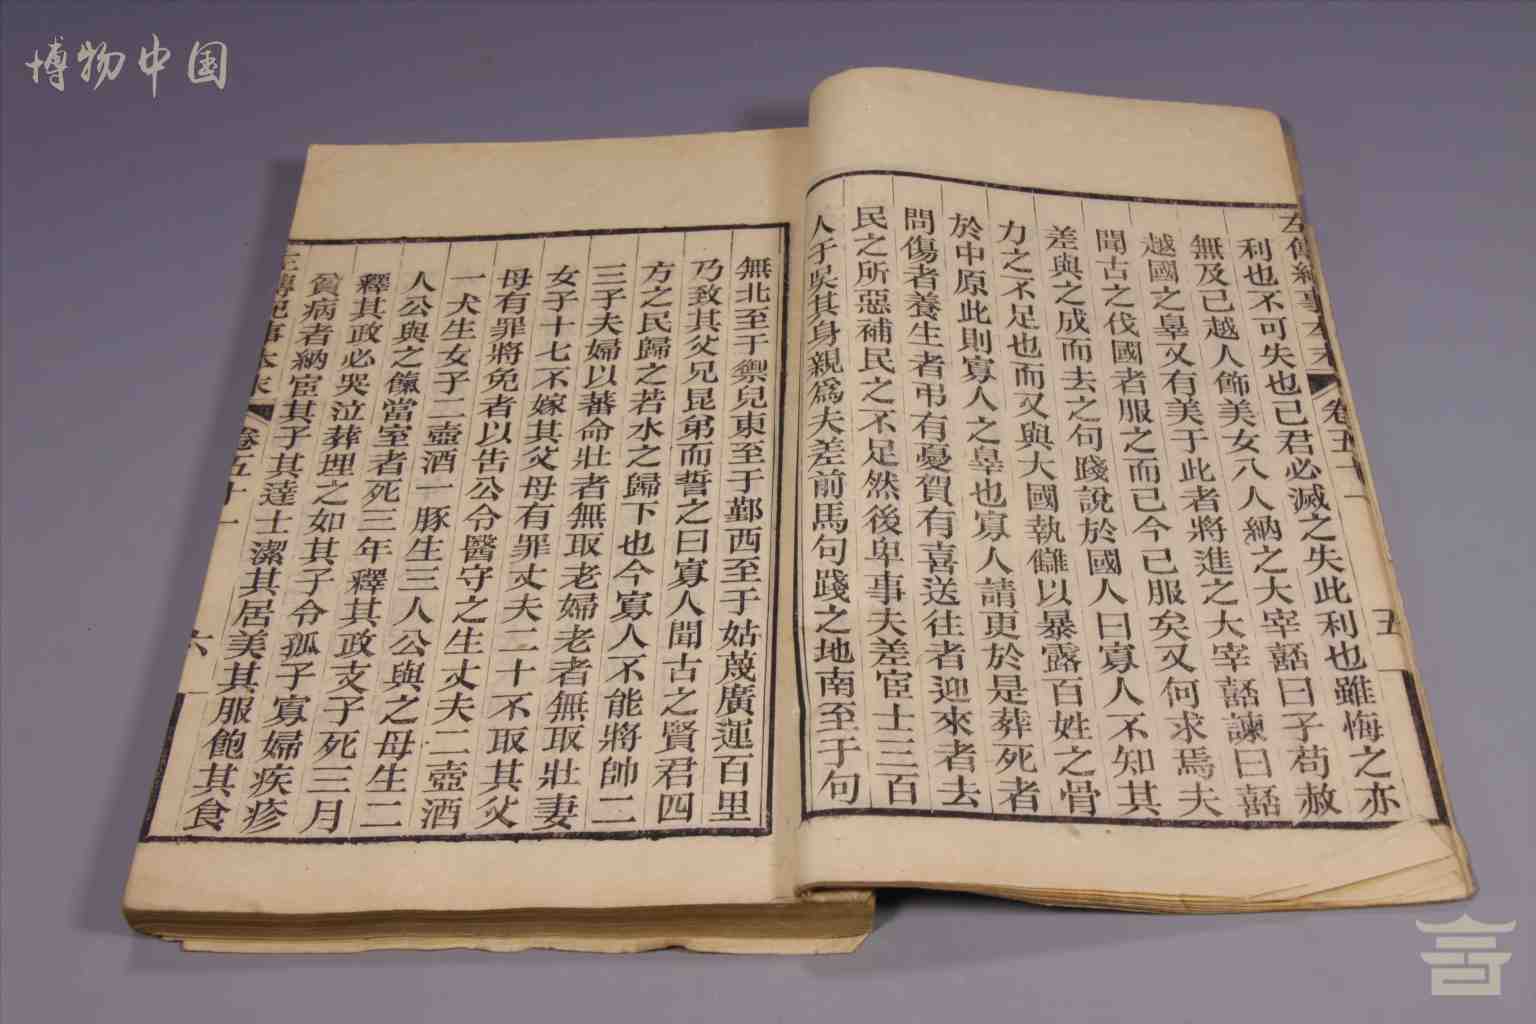 博物中国
左傳紀事本末 卷五十一 五
利也不可失也已君必滅之失此利也雖悔之亦
無及已越人飾美女八人納之大宰嚭曰子苟赦
越國之辠又有美于此者將進之大宰嚭諫曰嚭
聞古之伐國者服之而已今已服矣又何求焉夫
差與之成而去之句踐說於國人曰寡人不知其
力之不足也而又與大國執讎以暴露百姓之骨
於中原此則寡人之辠也寡人請更於是葬死者
問傷者養生者弔有憂賀有喜送往者迎來者去
民之所惡補民之不足然後卑事夫差宦士三百
人于吳其身親爲夫差前馬句踐之地南至于句
無北至于禦兒東至于鄞西至于姑蔑廣運百里
乃致其父兄昆弟而誓之曰寡人聞古之賢君四
方之民歸之若水之歸下也今寡人不能將帥二
三子夫婦以蕃命壯者無取老婦老者無取壯妻
女子十七不嫁其父母有罪丈夫二十不取其父
母有罪將免者以告公令醫守之生丈夫二壺酒
一犬生女子二壺酒一豚生三人公與之母生二
人公與之餼當室者死三年釋其政支子死三月
釋其政必哭泣葬埋之如其子令孤子寡婦疾疹
貧病者納宦其子其達士潔其居美其服飽其食
左傳紀事本末 卷五十一 六